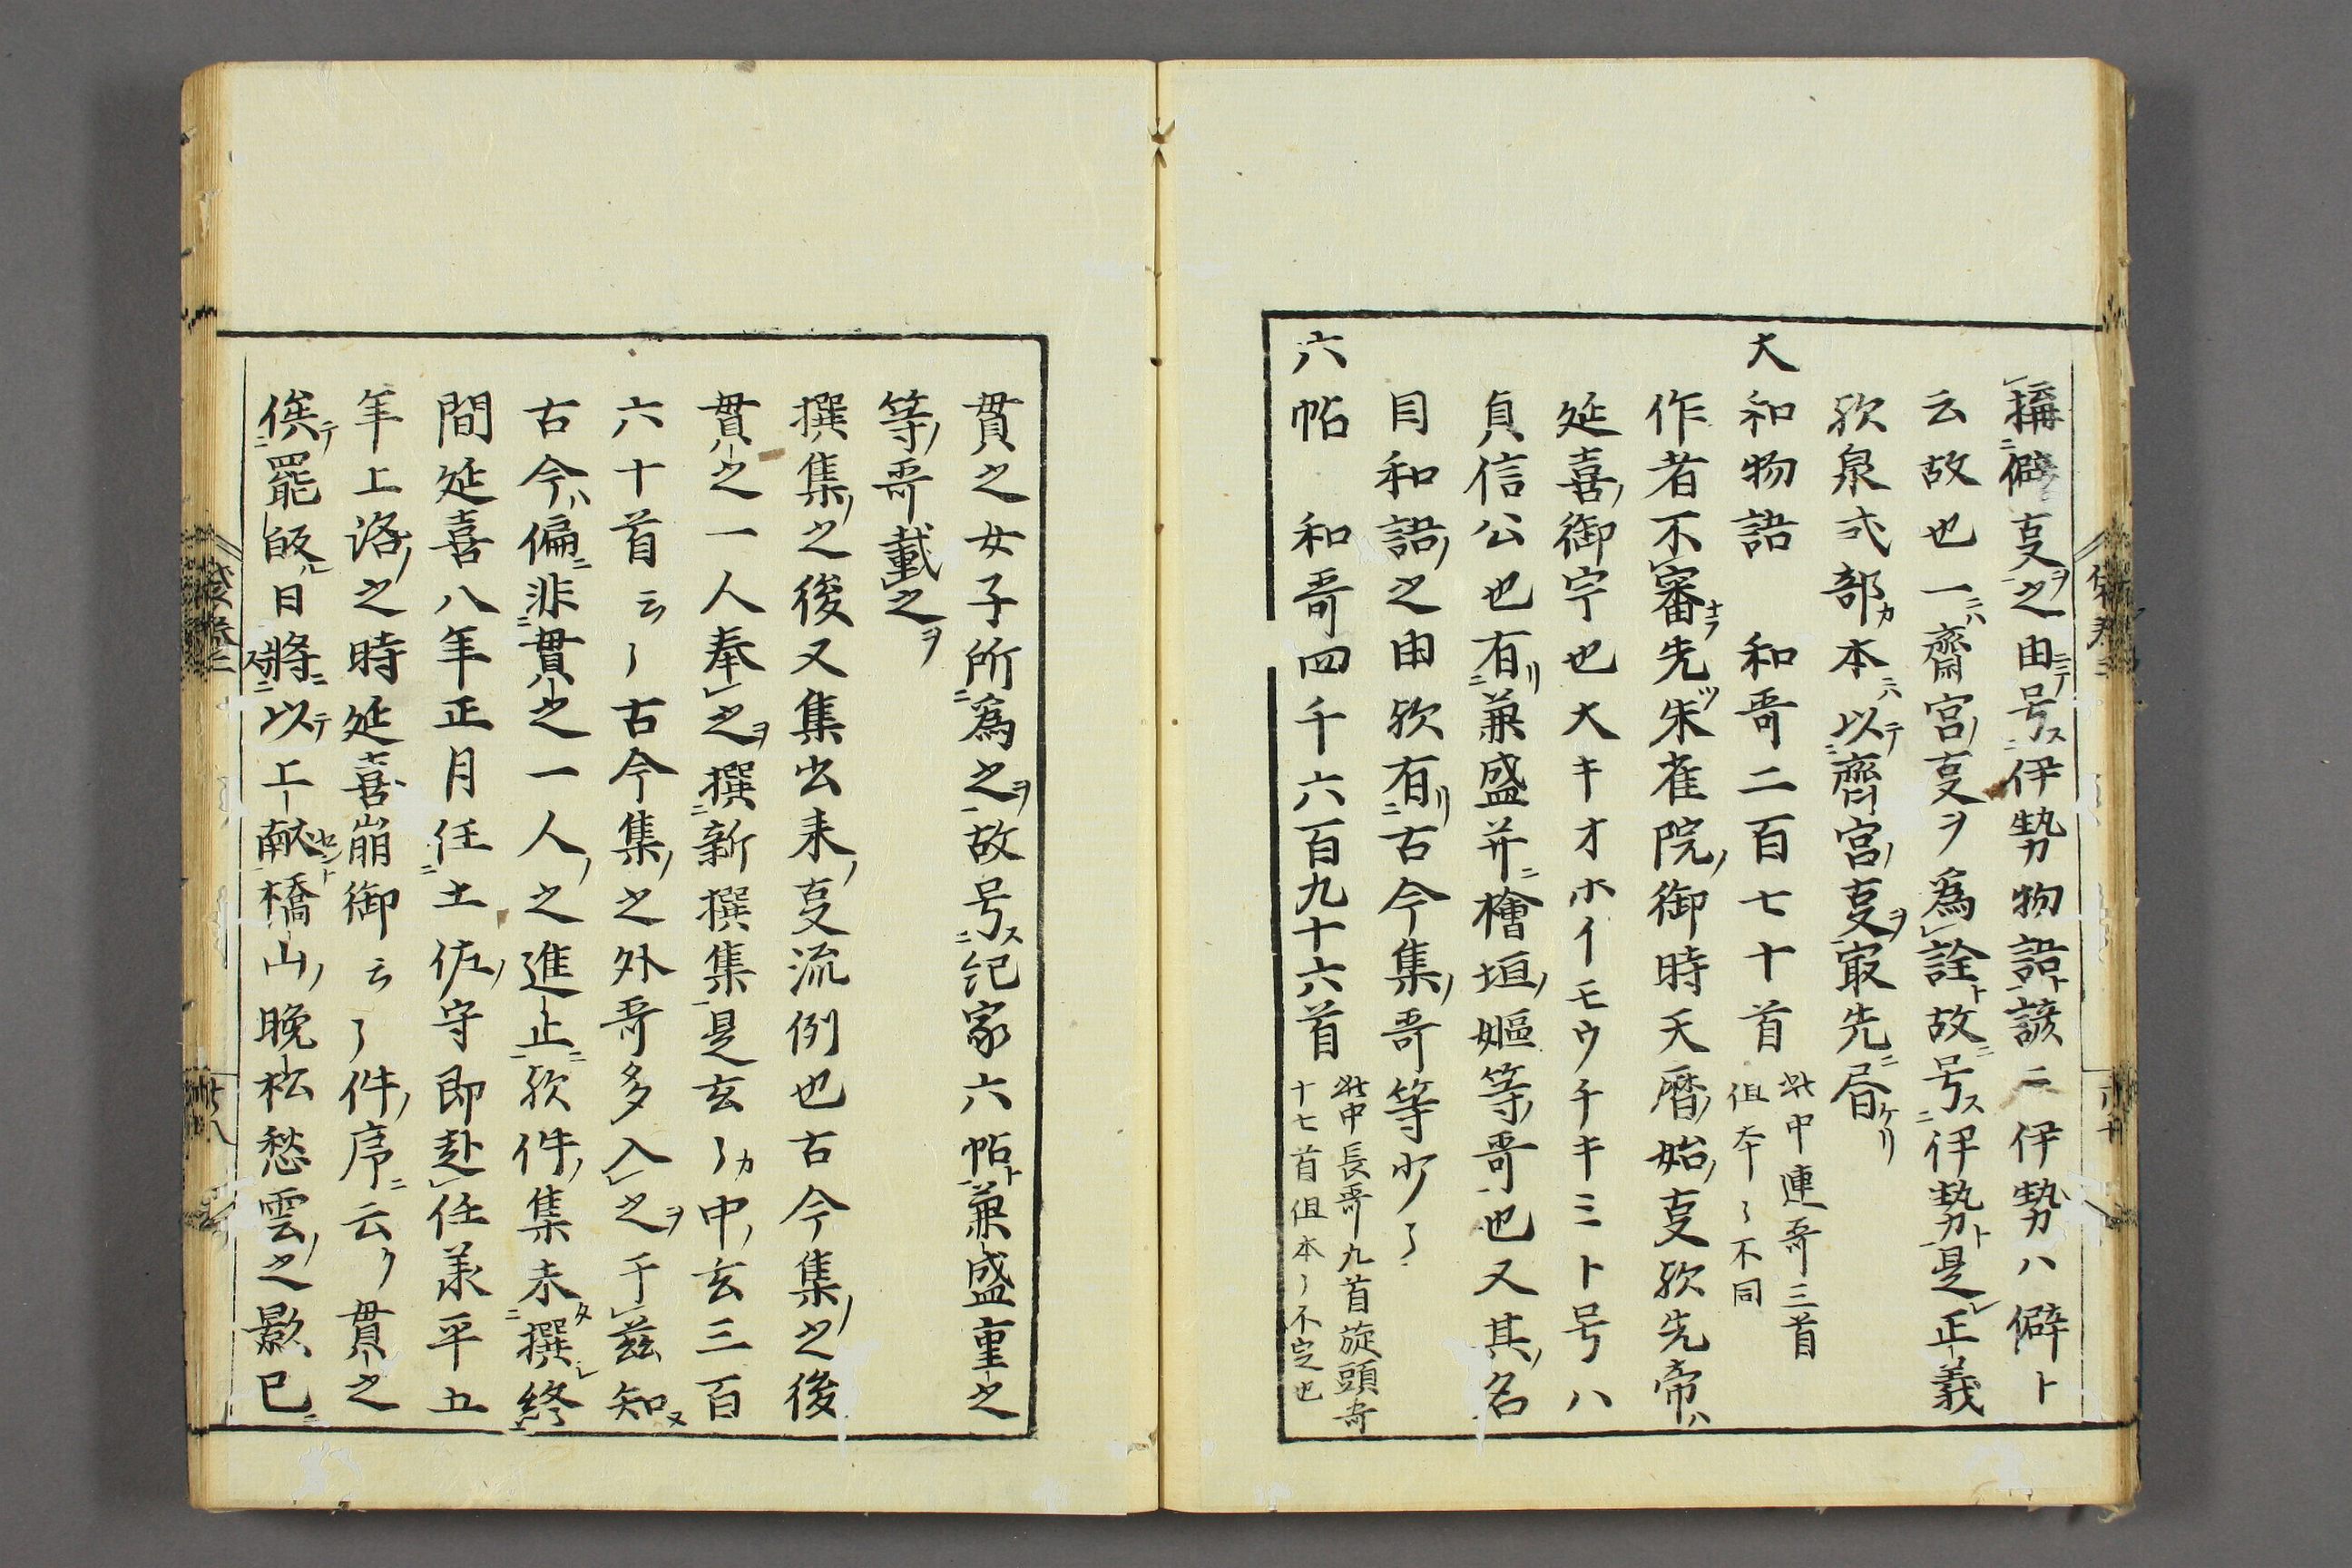 稱僻叓之由号伊勢物語諺ニ伊勢ハ僻ト
云故也一齋宮叓ヲ爲詮故号伊勢是正義
欤泉式部本以齋宮叓冣先
大和物語 和哥二百七十首 此中連哥三首
但本々不同
作者不審先朱雀院御時天曆始叓欤先帝ハ
延喜御字也大キオホイモウチキミト号ハ
貞信公也有兼盛并檜垣嫗等哥也又其名
目和語之由欤有古今集哥等少々
六帖 和哥四千六百九十六首 此中長哥九首旋頭哥
十七首但本々不定也
貫之女子所爲之故号紀家六帖兼盛重之
等哥載之
撰集之後又集出来叓流例也古今集之後
貫之一人奉之撰新撰集是玄々中玄三百
六十首云々古今集之外哥多入之于茲知
古今偏非貫之一人之進止欤件集未撰終
間延喜八年正月任土佐守即赴任羕平五
年上洛之時延喜崩御云々件序云貫之
俟罷皈日將以上献橋山晩松愁雲之影已